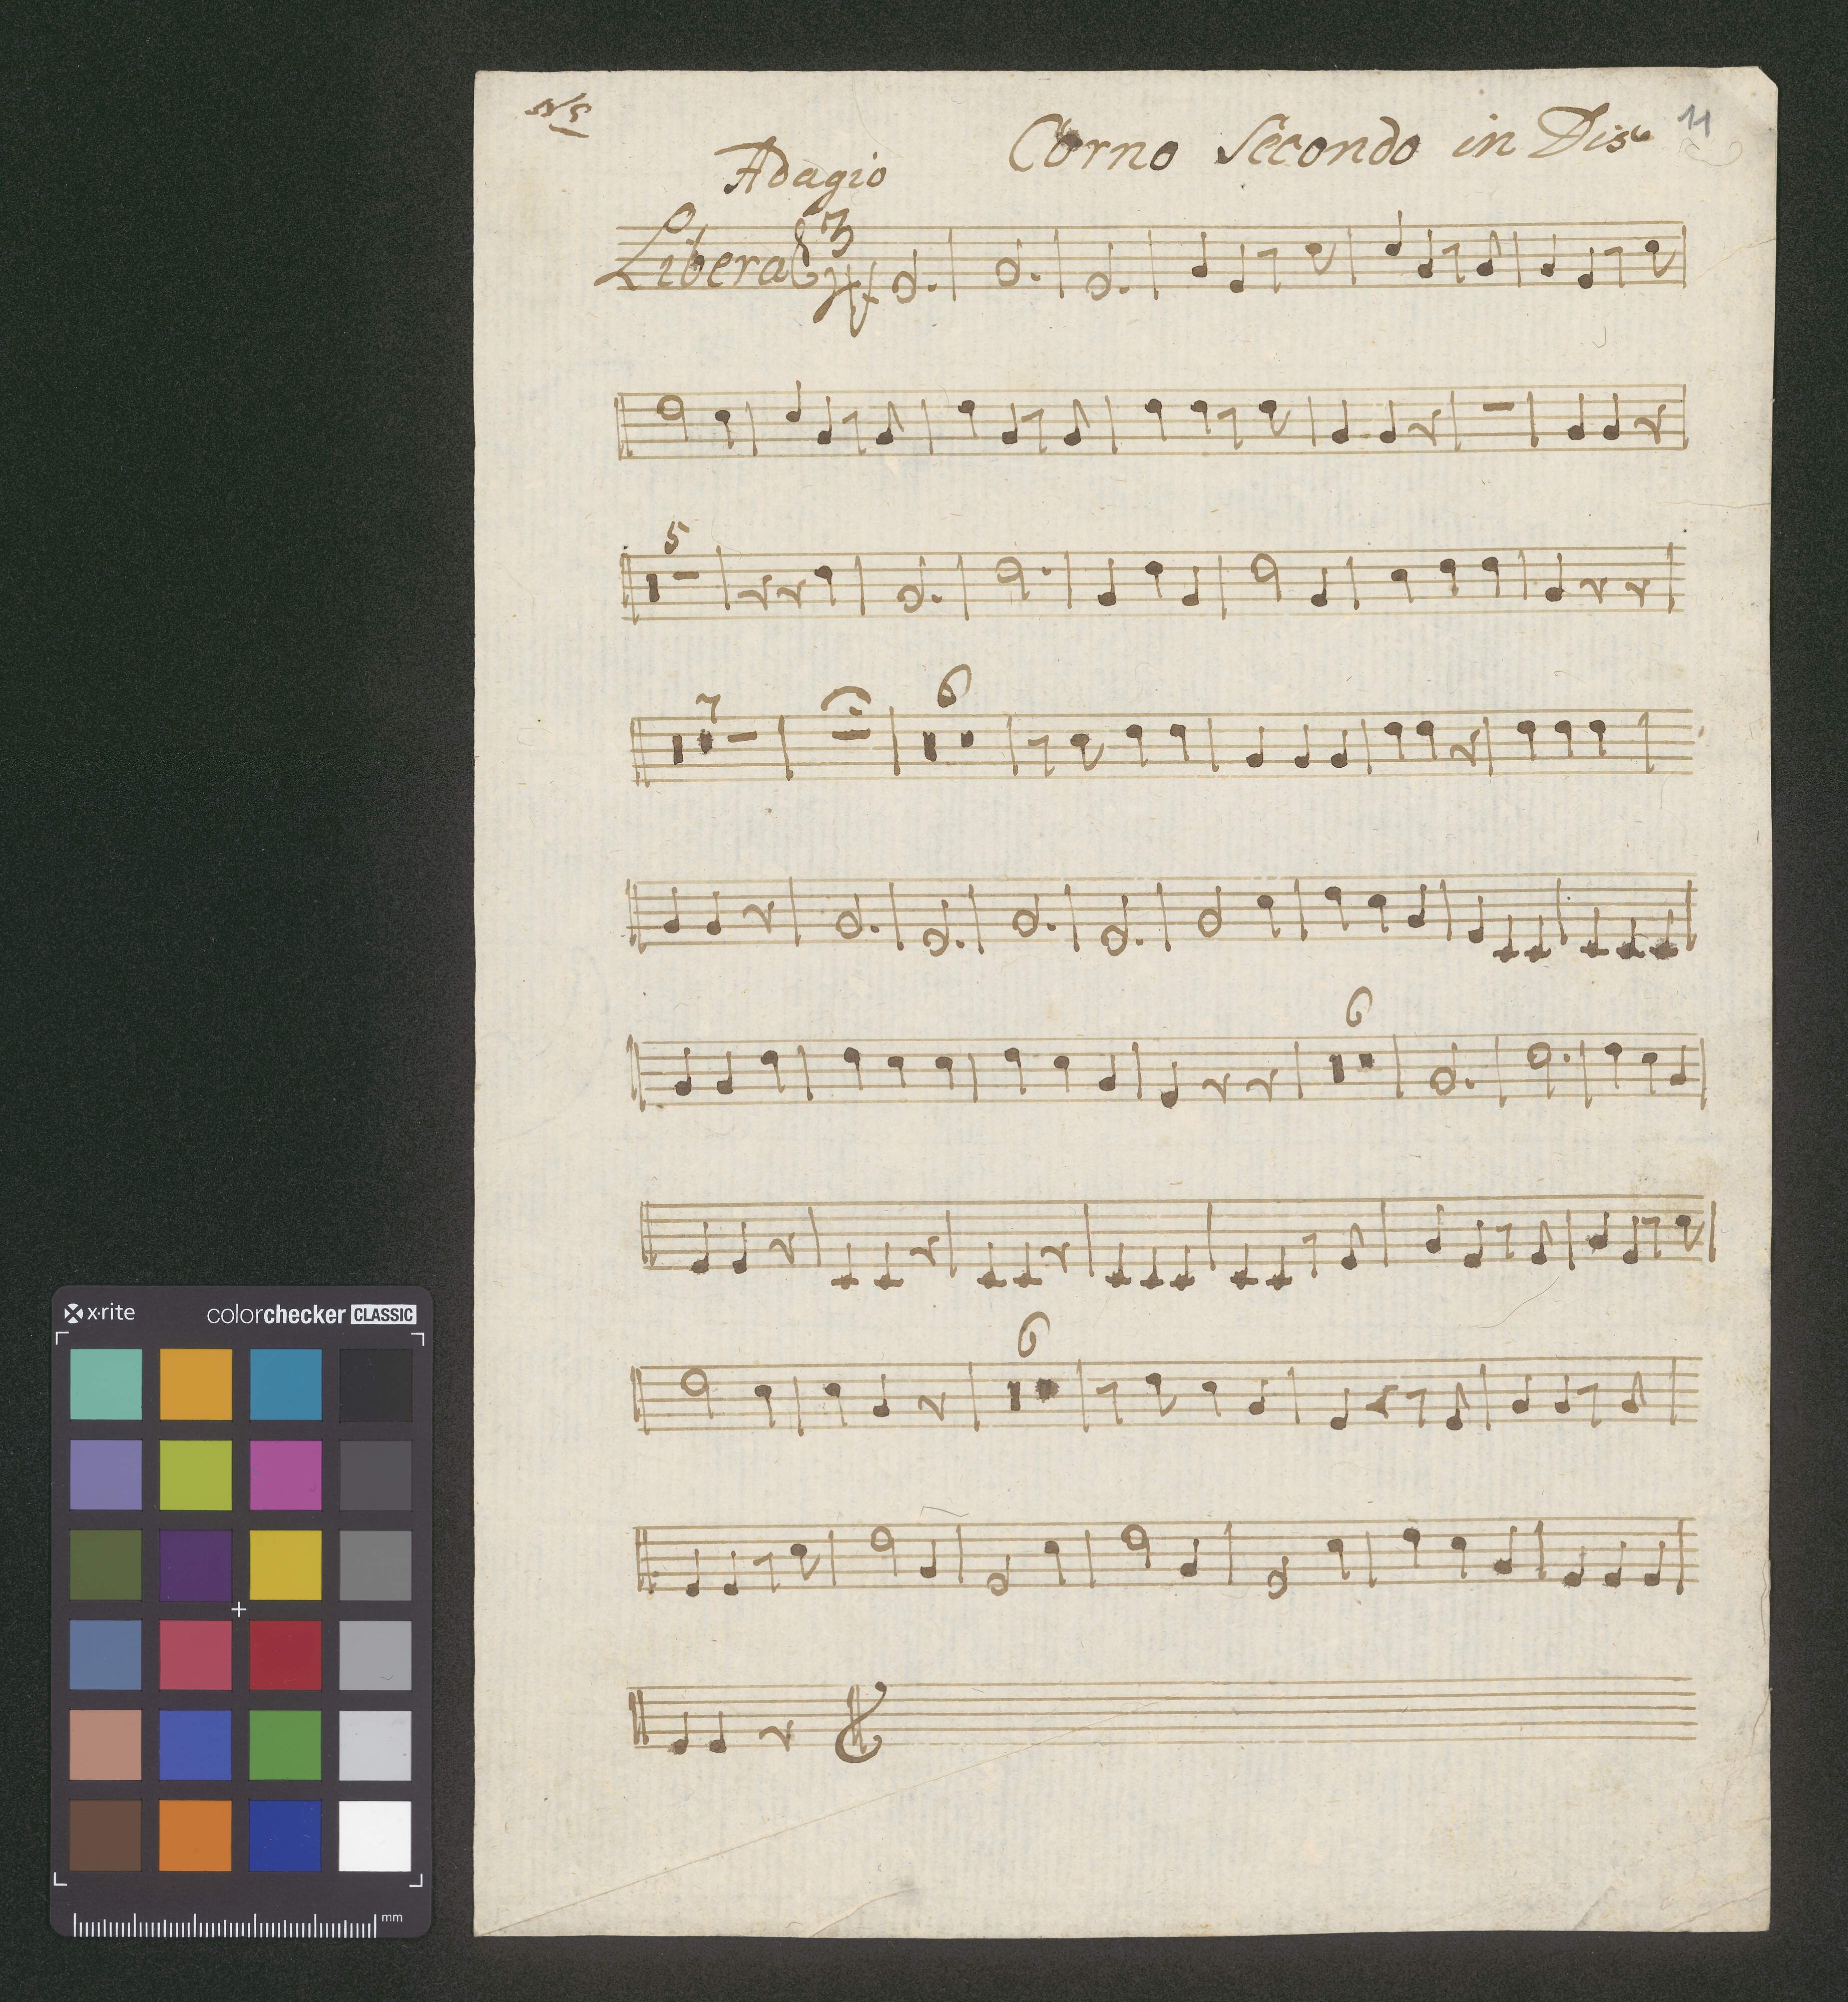 11
Corno Secondo in Dis
Adagio
Libera 3 4
5
7
6
6
6
x-rite colorchecker CLASSIC
mm